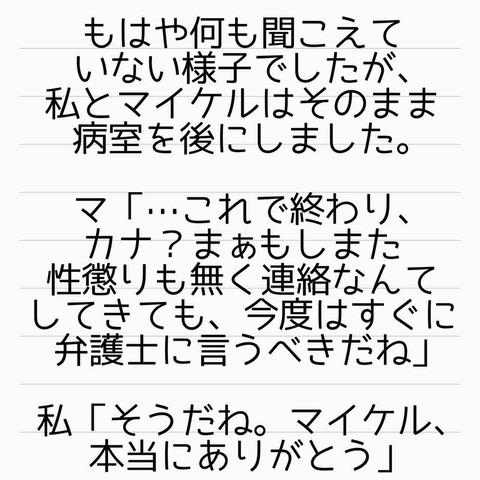 もはや何も聞こえて
いない様子でしたが、
私とマイケルはそのまま
病室を後にしました。
マ「…これで終わり、
カナ？まぁもしまた
性懲りも無く連絡なんて
してきても、今度はすぐに
弁護士に言うべきだね」
私「そうだね。マイケル、
本当にありがとう」